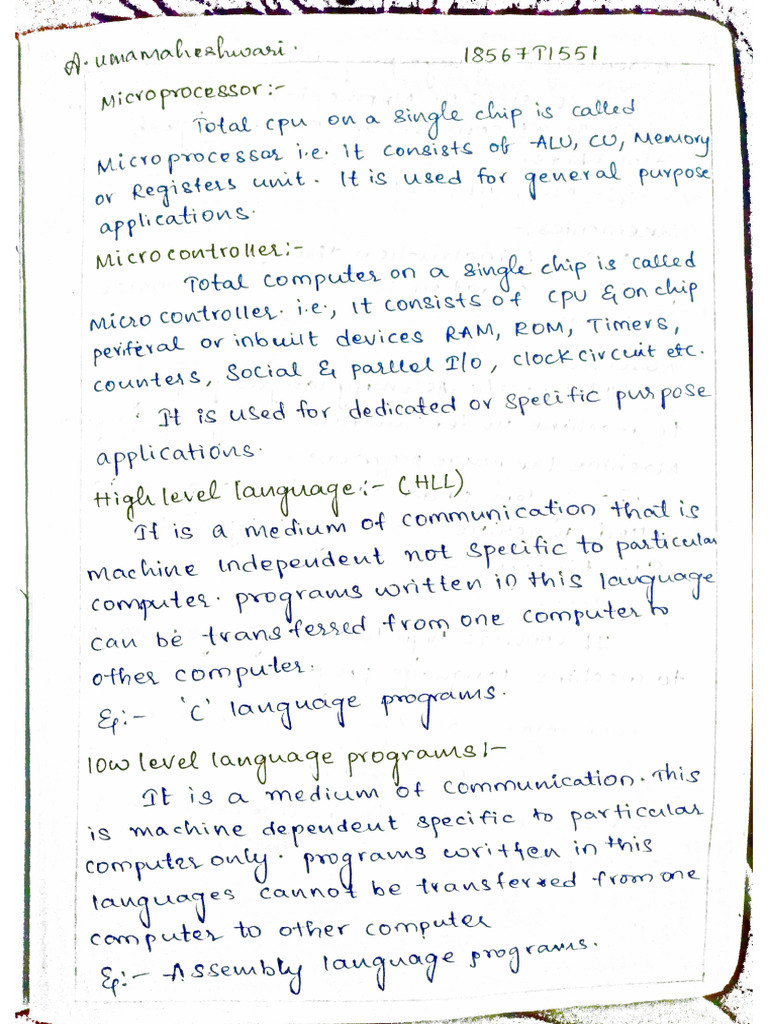 A. umamaheshwari. 18567T1551
Microprocessor:-
Total cpu on a single chip is called
Microprocessor i.e. it consists of ALU, CU, Memory
or Registers unit. It is used for general purpose
applications.
Microcontroller:-
Total computer on a single chip is called
Micro controller. i.e., it consists of cpu & on chip
periferal or inbuilt devices RAM, ROM, Timers,
counters, Social & parllel I/o, clock circuit etc.
It is used for dedicated or specific purpose
applications.
High level language:- (HLL)
It is a medium of communication that is
machine independent not specific to particular
computer. programs written in this language
can be transferred from one computer to
other computer.
Eg:- 'C' language programs.
low level language programs:-
It is a medium of communication. This
is machine dependent specific to particular
computer only. programs written in this
languages cannot be transferred from one
computer to other computer
Eg:- Assembly language programs.